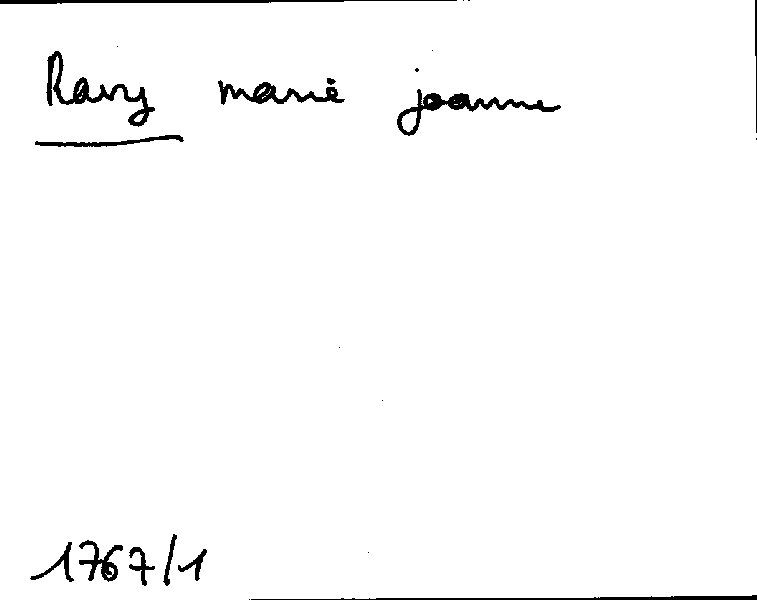 Ravy marie joanne
1767/1